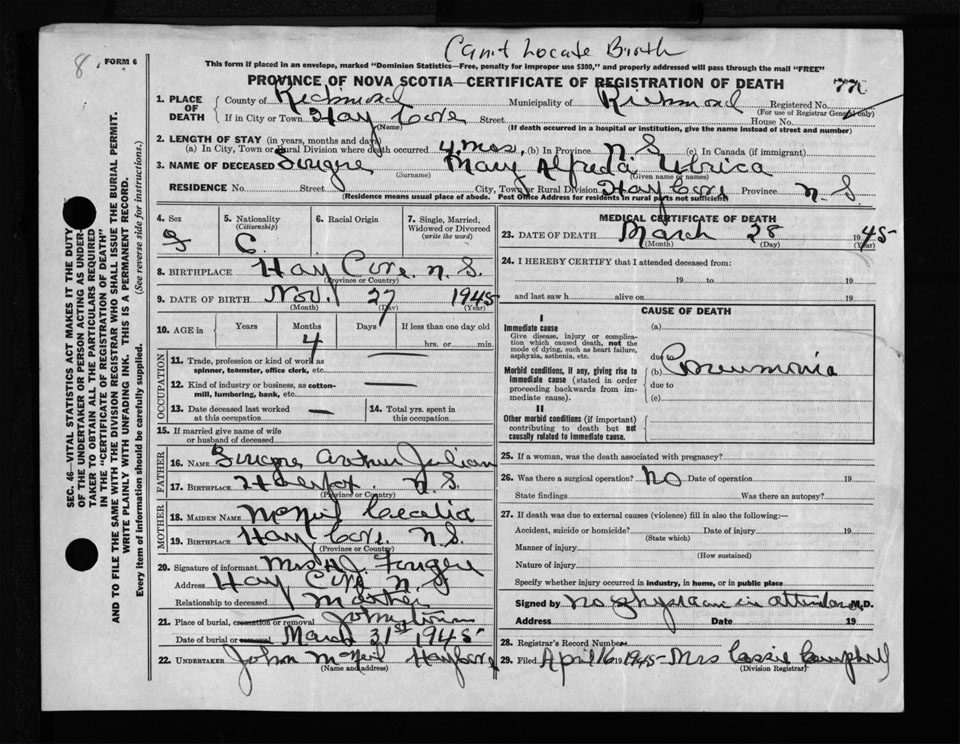 8.
FORM 6
Can't Locate Birth
This form if placed in an envelope, marked "Dominion Statistics—Free, penalty for improper use $300," and properly addressed will pass through the mail "FREE"
PROVINCE OF NOVA SCOTIA—CERTIFICATE OF REGISTRATION OF DEATH
1. PLACE OF DEATH
County of Richmond Municipality of Richmond Registered No.
(For use of Registrar General only)
If in City or Town Hay Cove Street House No.
(Name) (If death occurred in a hospital or institution, give the name instead of street and number)
2. LENGTH OF STAY (in years, months and days)
(a) In City, Town or Rural Division where death occurred 4 mos. (b) In Province N S (c) In Canada (if immigrant)
3. NAME OF DECEASED Mary Alfreda
(Surname) (Given name or names)
RESIDENCE No. Street City, Town or Rural Division Hay Cove Province N. S.
(Residence means usual place of abode. Post Office Address for residents in rural parts not sufficient)
SEC. 46—VITAL STATISTICS ACT MAKES IT THE DUTY
OF THE UNDERTAKER OR PERSON ACTING AS UNDER-
TAKER TO OBTAIN ALL THE PARTICULARS REQUIRED
IN THE "CERTIFICATE OF REGISTRATION OF DEATH"
AND TO FILE THE SAME WITH THE DIVISION REGISTRAR WHO SHALL ISSUE THE BURIAL PERMIT.
WRITE PLAINLY WITH UNFADING INK. THIS IS A PERMANENT RECORD.
Every item of information should be carefully supplied. (See reverse side for instructions.)
4. Sex
5. Nationality (Citizenship) C.
6. Racial Origin
7. Single, Married, Widowed or Divorced (write the word) S
8. BIRTHPLACE Hay Cove. N. S.
(Province or Country)
9. DATE OF BIRTH Nov. 27 1945
(Month) (Day) (Year)
10. AGE in Years Months 4 Days If less than one day old
hrs. or min.
OCCUPATION
11. Trade, profession or kind of work as
spinner, teamster, office clerk, etc. —
12. Kind of industry or business, as cotton-
mill, lumbering, bank, etc. —
13. Date deceased last worked
at this occupation —
14. Total yrs. spent in
this occupation
15. If married give name of wife
or husband of deceased
FATHER
16. NAME Arthur Julian
17. BIRTHPLACE N. S.
(Province or Country)
MOTHER
18. MAIDEN NAME McNeil Cecelia
19. BIRTHPLACE Hay Cove. N. S.
(Province or Country)
20. Signature of informant Mrs A J. Fougere
Address Hay Cove N. S
Relationship to deceased Mother
21. Place of burial, cremation or removal Johnstown
Date of burial or removal March 31st 1945
22. UNDERTAKER John McNeil Hay Cove
(Name and address)
MEDICAL CERTIFICATE OF DEATH
23. DATE OF DEATH March 28 1945
(Month) (Day) (Year)
24. I HEREBY CERTIFY that I attended deceased from:
19 to 19
and last saw h alive on 19
CAUSE OF DEATH
I
Immediate cause (a)
Give disease, injury or complica-
tion which caused death, not the
mode of dying, such as heart failure,
asphyxia, asthenia, etc.
due to
Morbid conditions, if any, giving rise to
immediate cause (stated in order
proceeding backwards from im-
mediate cause).
(b) Pneumonia
due to
(c)
II
Other morbid conditions (if important)
contributing to death but not
causally related to immediate cause.
25. If a woman, was the death associated with pregnancy?
26. Was there a surgical operation? No Date of operation 19
State findings Was there an autopsy?
27. If death was due to external causes (violence) fill in also the following:—
Accident, suicide or homicide? Date of injury 19
(State which)
Manner of injury
(How sustained)
Nature of injury
Specify whether injury occurred in industry, in home, or in public place
Signed by no physician in attendance M.D.
Address Date 19
28. Registrar's Record Number
29. Filed April 16 1945 - Mrs Cassie Campbell
(Division Registrar)